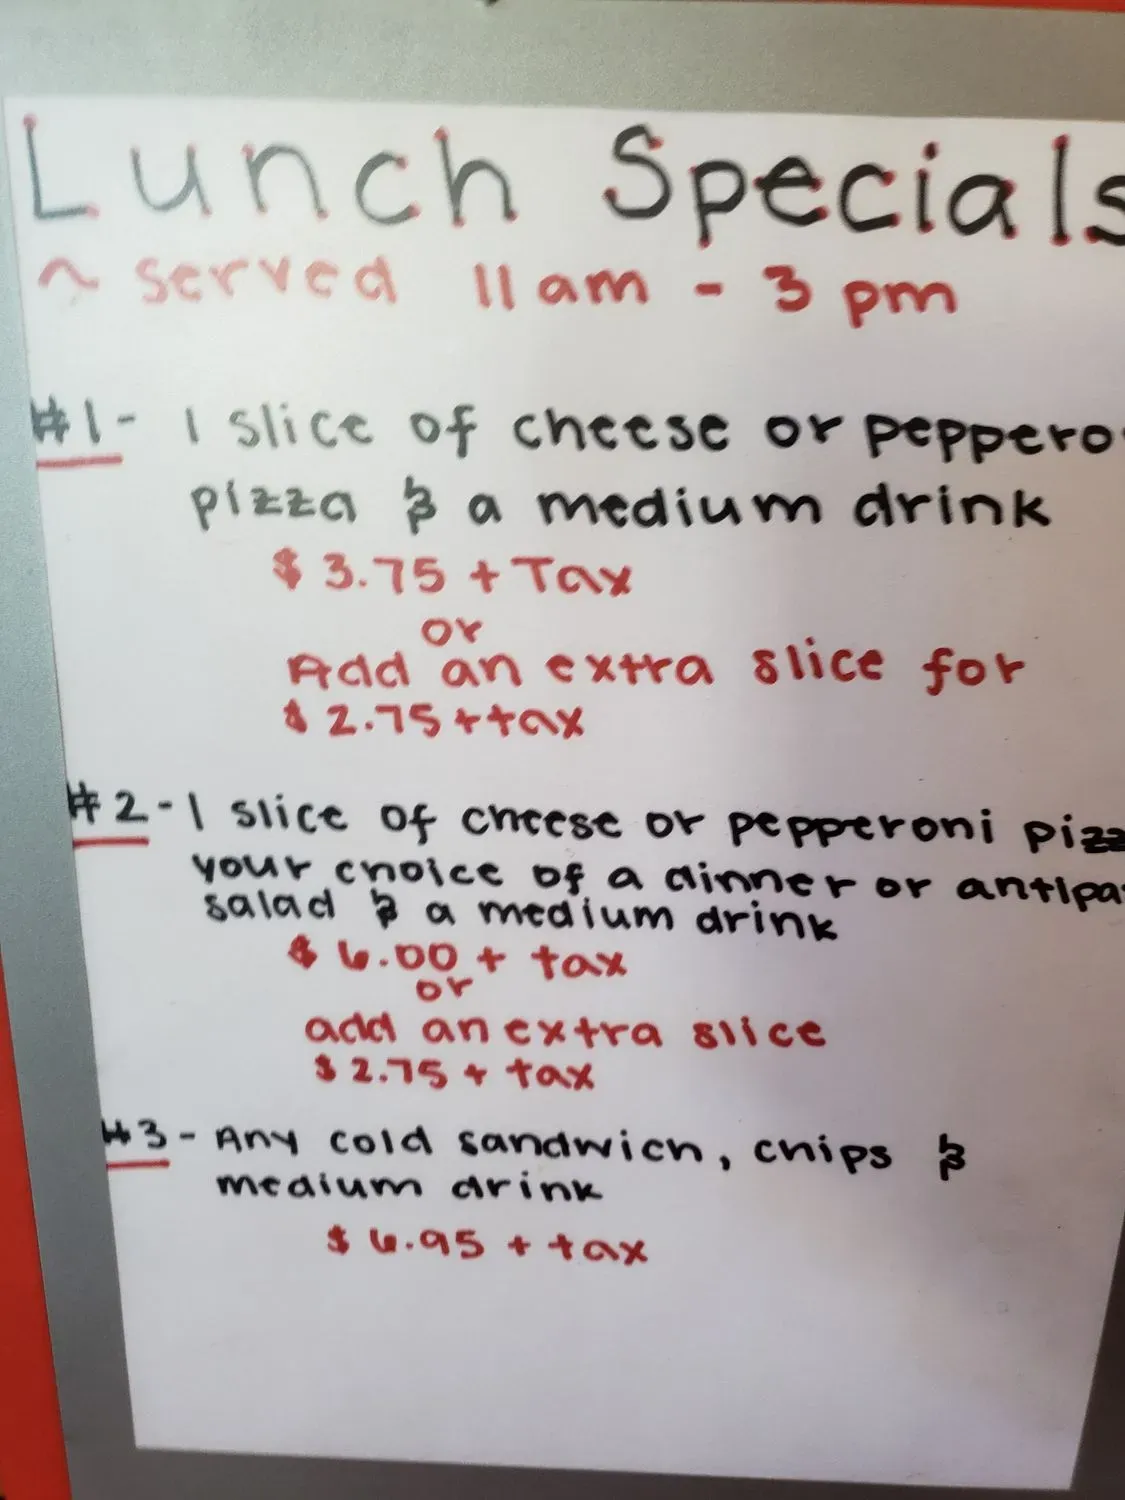 Lunch Specials
~ served 11am - 3 pm
#1- 1 slice of cheese or peppero
pizza & a medium drink
$3.75 + Tax
or
Add an extra slice for
$2.75 + tax
#2-1 slice of cheese or pepperoni pizz
your choice of a dinner or antipa
salad & a medium drink
$6.00 + tax
or
add an extra slice
$2.75 + tax
#3- Any cold sandwich, chips &
medium drink
$6.95 + tax